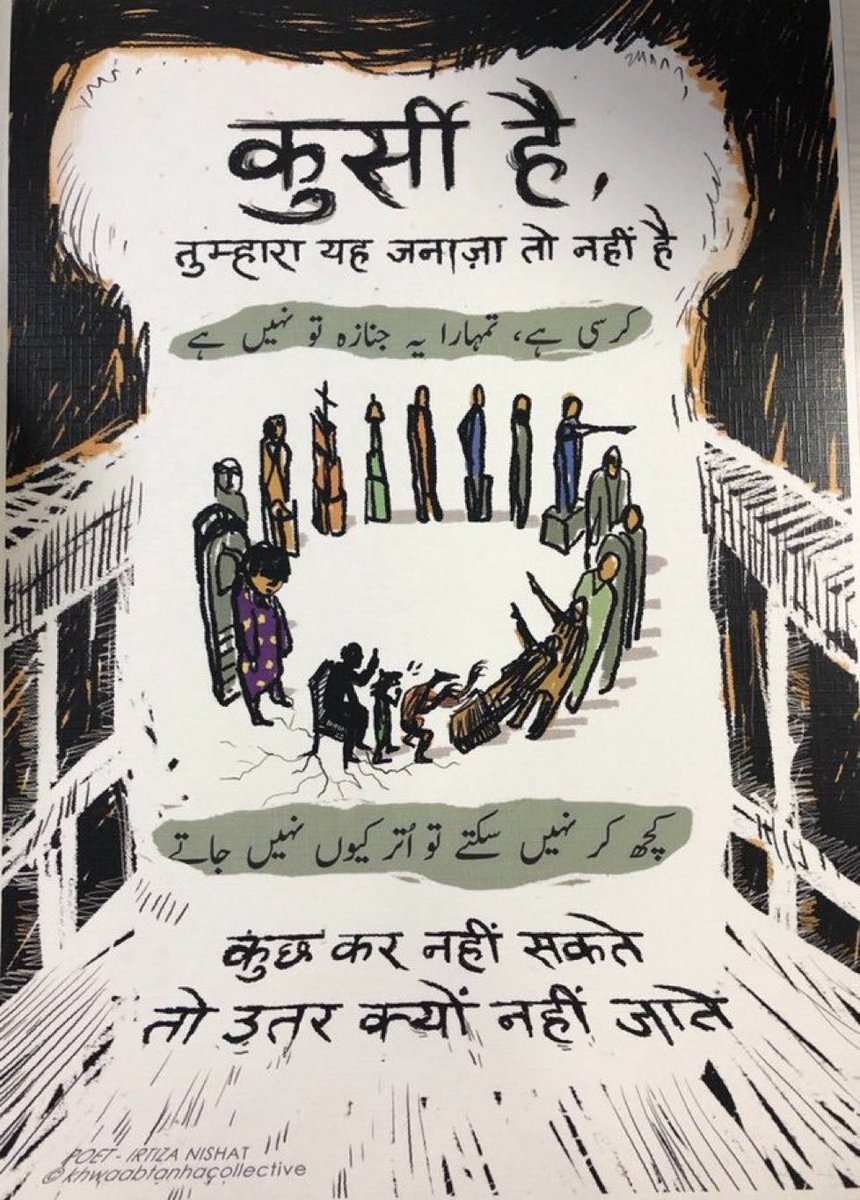 कुर्सी है,
तुम्हारा यह जनाज़ा तो नहीं है
کرسی ہے، تمہارا یہ جنازہ تو نہیں ہے
کچھ کر نہیں سکتے تو اُتر کیوں نہیں جاتے
कुछ कर नहीं सकते
तो उतर क्यों नहीं जाते
POET - IRTIZA NISHAT
© khwaabtanhacollective